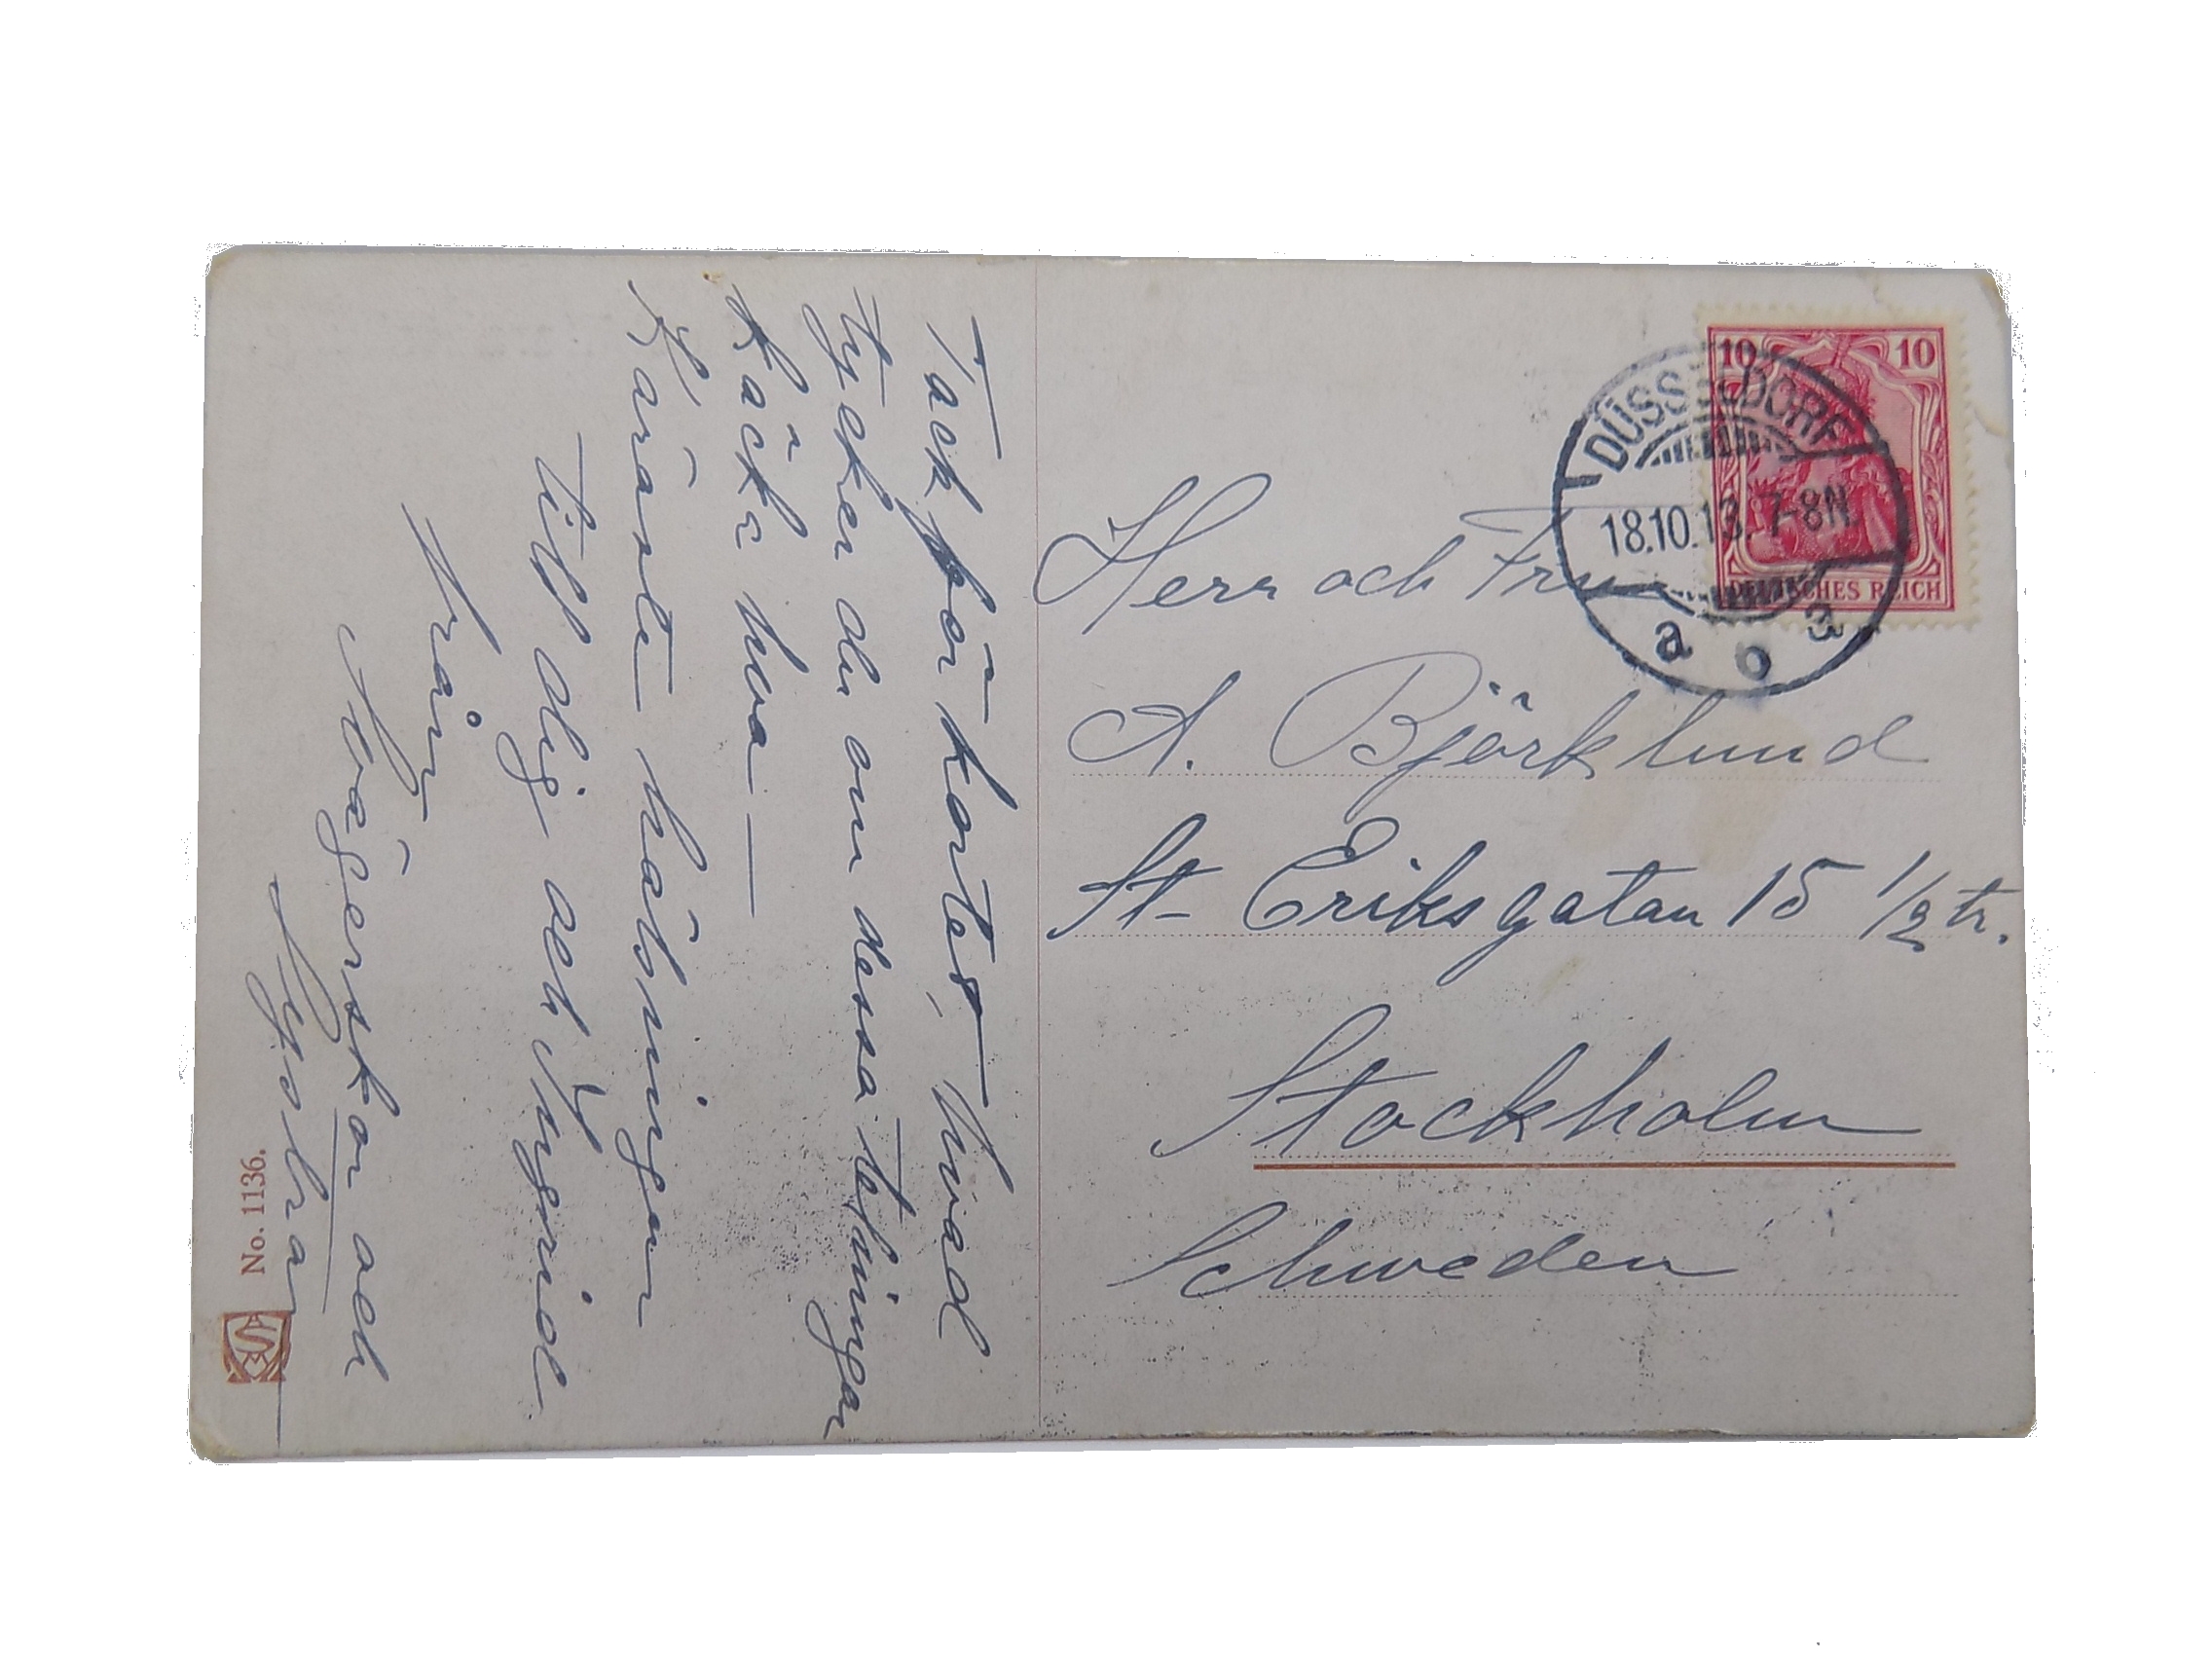 Tack för kortet, hvad
tycker du om dessa tekningar
käcka hva —
Käraste hälsningar
till dig och Ingrid
från
Svägerskan och
No. 1136.
10 10
DÜSSELDORF
18.10.13. 7-8N
a o 3
DEUTSCHES REICH
Herr och Fru
A. Björklund
St Eriksgatan 15 1/2 tr.
Stockholm
Schweden